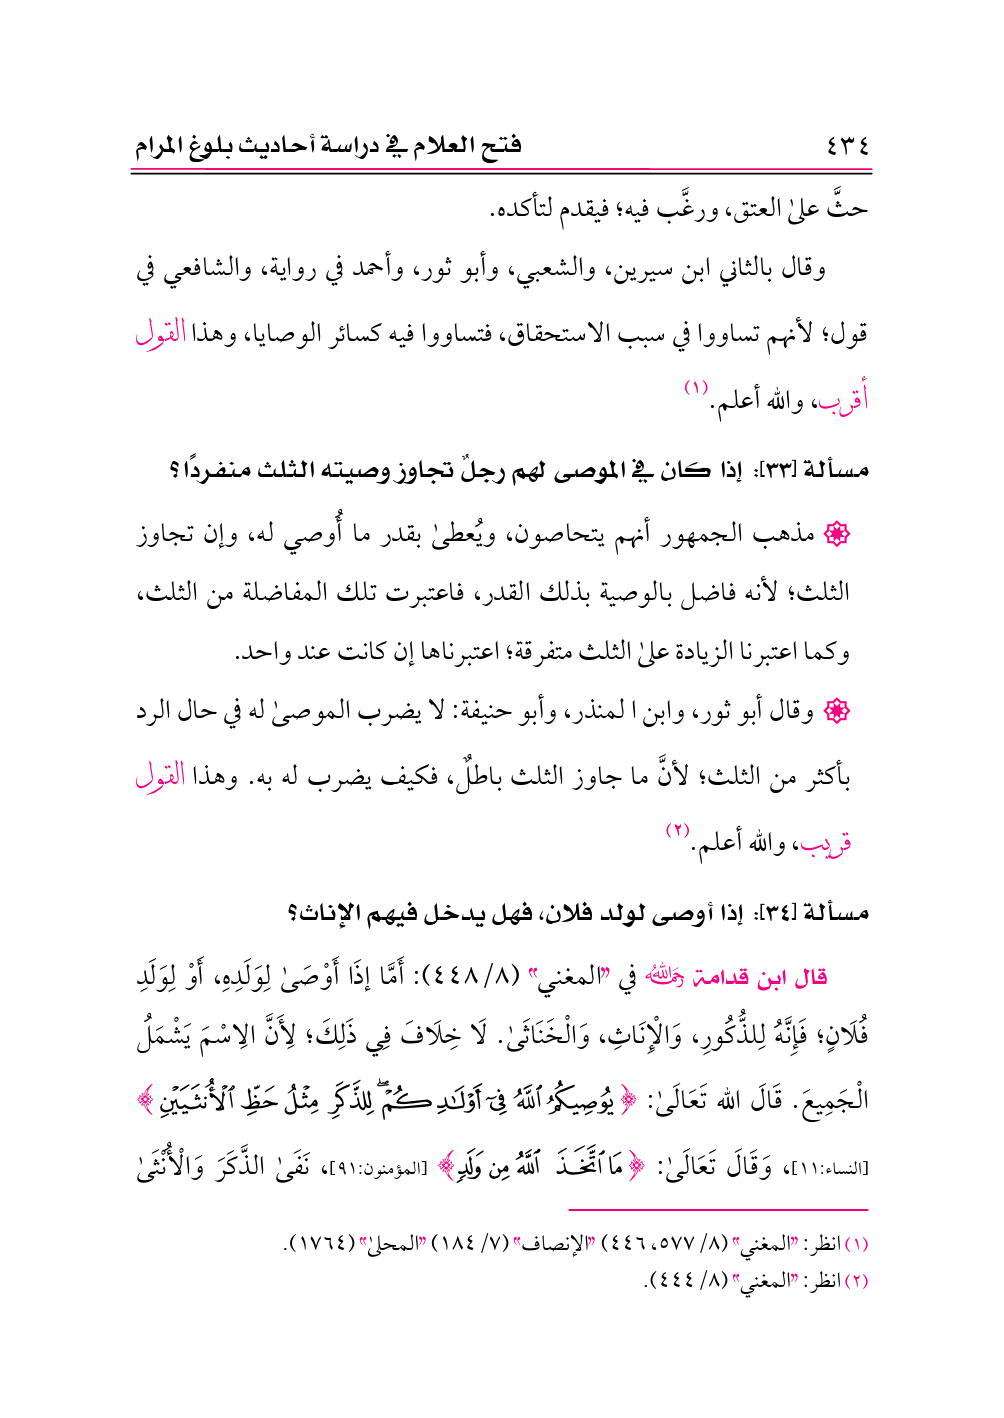 ٤٣٤ فتح العلام في دراسة أحاديث بلوغ المرام
حثَّ علىٰ العتق، ورغَّب فيه؛ فيقدم لتأكده.
وقال بالثاني ابن سيرين، والشعبي، وأبو ثور، وأحمد في رواية، والشافعي في
قول؛ لأنهم تساووا في سبب الاستحقاق، فتساووا فيه كسائر الوصايا، وهذا القول
أقرب، والله أعلم.(١)
مسألة [٣٣]: إذا كان في الموصى لهم رجلٌ تجاوز وصيته الثلث منفردًا؟
مذهب الجمهور أنهم يتحاصون، ويُعطىٰ بقدر ما أُوصي له، وإن تجاوز
الثلث؛ لأنه فاضل بالوصية بذلك القدر، فاعتبرت تلك المفاضلة من الثلث،
وكما اعتبرنا الزيادة علىٰ الثلث متفرقة؛ اعتبرناها إن كانت عند واحد.
وقال أبو ثور، وابن ا لمنذر، وأبو حنيفة: لا يضرب الموصىٰ له في حال الرد
بأكثر من الثلث؛ لأنَّ ما جاوز الثلث باطلٌ، فكيف يضرب له به. وهذا القول
قريب، والله أعلم.(٢)
مسألة [٣٤]: إذا أوصى لولد فلان، فهل يدخل فيهم الإناث؟
قال ابن قدامة رحمه الله في "المغني" (٨/ ٤٤٨): أَمَّا إذَا أَوْصَىٰ لِوَلَدِهِ، أَوْ لِوَلَدِ
فُلَانٍ؛ فَإِنَّهُ لِلذُّكُورِ، وَالْإِنَاثِ، وَالْخَنَاثَىٰ. لَا خِلَافَ فِي ذَلِكَ؛ لِأَنَّ الِاسْمَ يَشْمَلُ
الْجَمِيعَ. قَالَ الله تَعَالَىٰ: ﴿يُوصِيكُمُ ٱللَّهُ فِىٓ أَوْلَٰدِكُمْ ۖ لِلذَّكَرِ مِثْلُ حَظِّ ٱلْأُنثَيَيْنِ﴾
[النساء:١١]، وَقَالَ تَعَالَىٰ: ﴿مَا ٱتَّخَذَ ٱللَّهُ مِن وَلَدٍ﴾ [المؤمنون:٩١]، نَفَىٰ الذَّكَرَ وَالْأُنْثَىٰ
(١) انظر: "المغني" (٨/ ٥٧٧، ٤٤٦) "الإنصاف" (٧/ ١٨٤) "المحلىٰ" (١٧٦٤).
(٢) انظر: "المغني" (٨/ ٤٤٤).